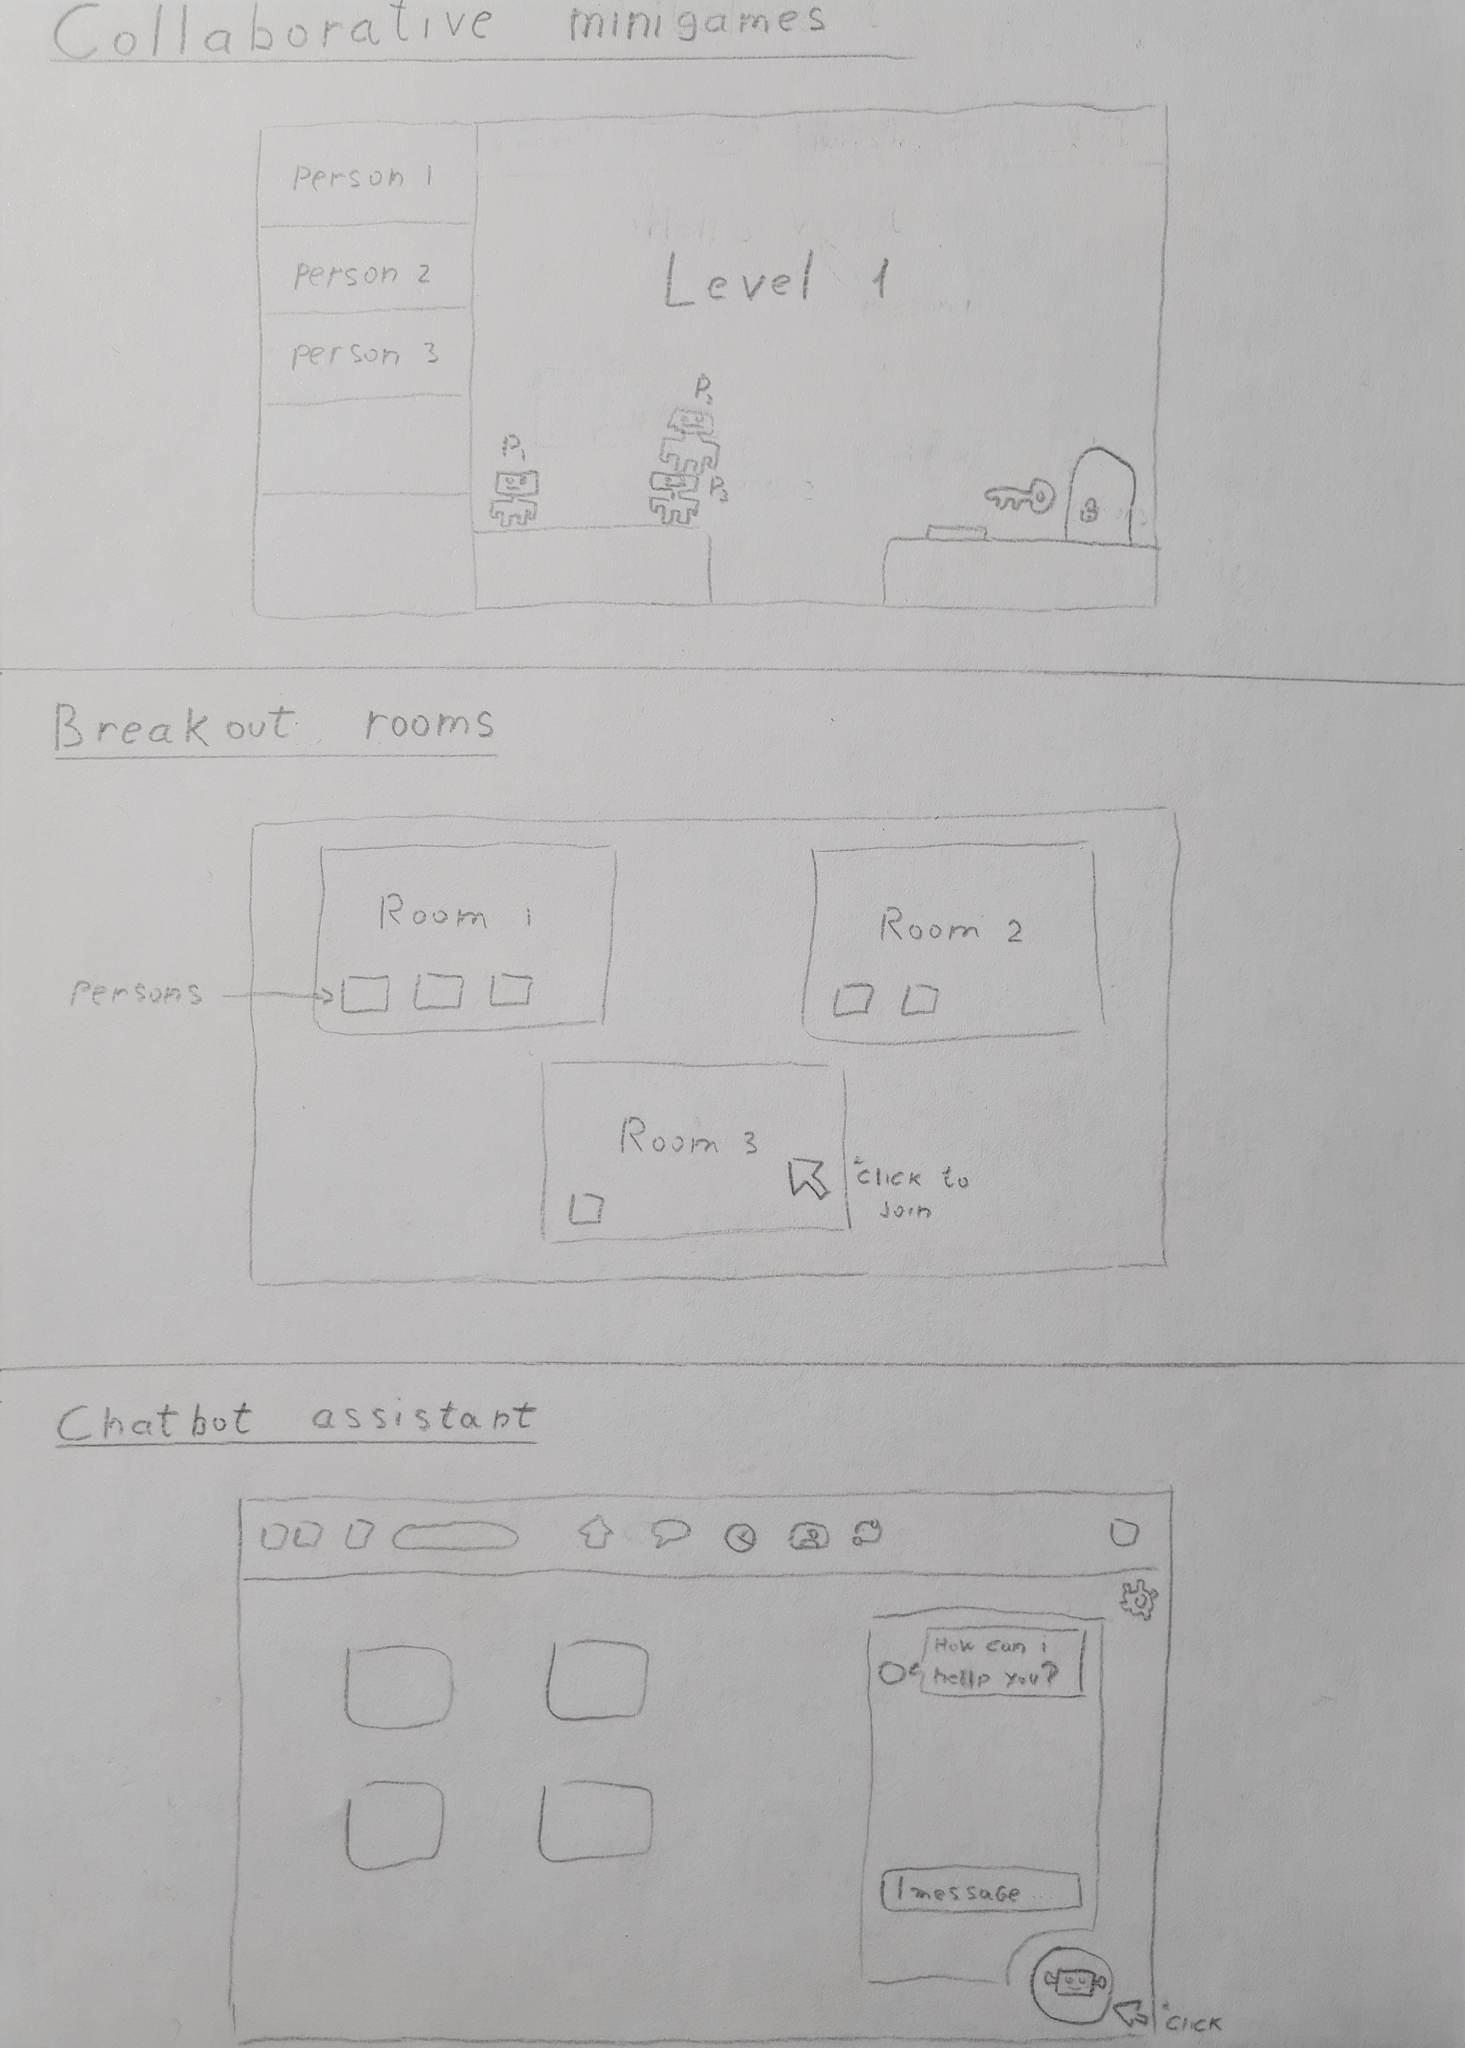 Collaborative minigames
Person 1
Person 2
Person 3
Level 1
P1
Breakout rooms
Room 1
Room 2
Persons
Room 3
*click to
Join
Chatbot assistant
How can i
hellp you?
message...
*click